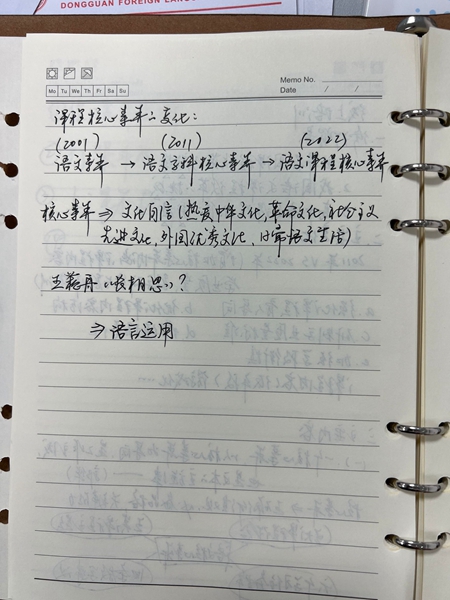 DONGGUAN FOREIGN LAN
Memo No.
Mo Tu We Th Fr Sa Su
Date / /
课程核心素养之变化：
(2001) (2011) (2022)
语文素养 → 语文学科核心素养 → 语文课程核心素养
核心素养 ⇒ 文化自信（热爱中华文化，革命文化，社会主义
先进文化，外国优秀文化，日常语文生活）
王荣生《》？
⇒ 语言运用